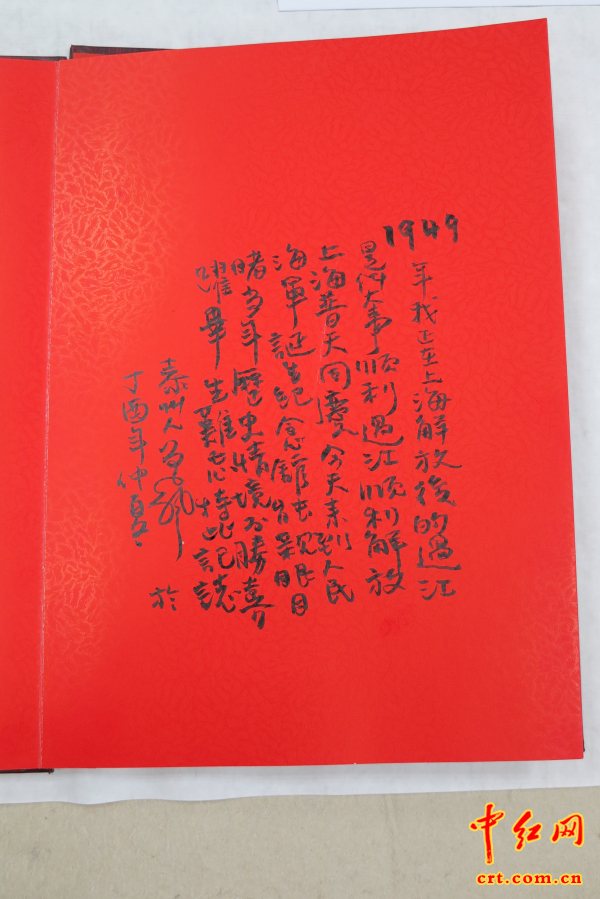 1949年我正在上海解放後的過江
是件大事順利過江順利解放
上海普天同慶今天来到人民
海軍誕生紀念館眼目
睹当年歷史情境不勝喜
躍畢生難忘特此記誌
於
泰州人
丁酉年仲夏
中红网
crt.com.cn